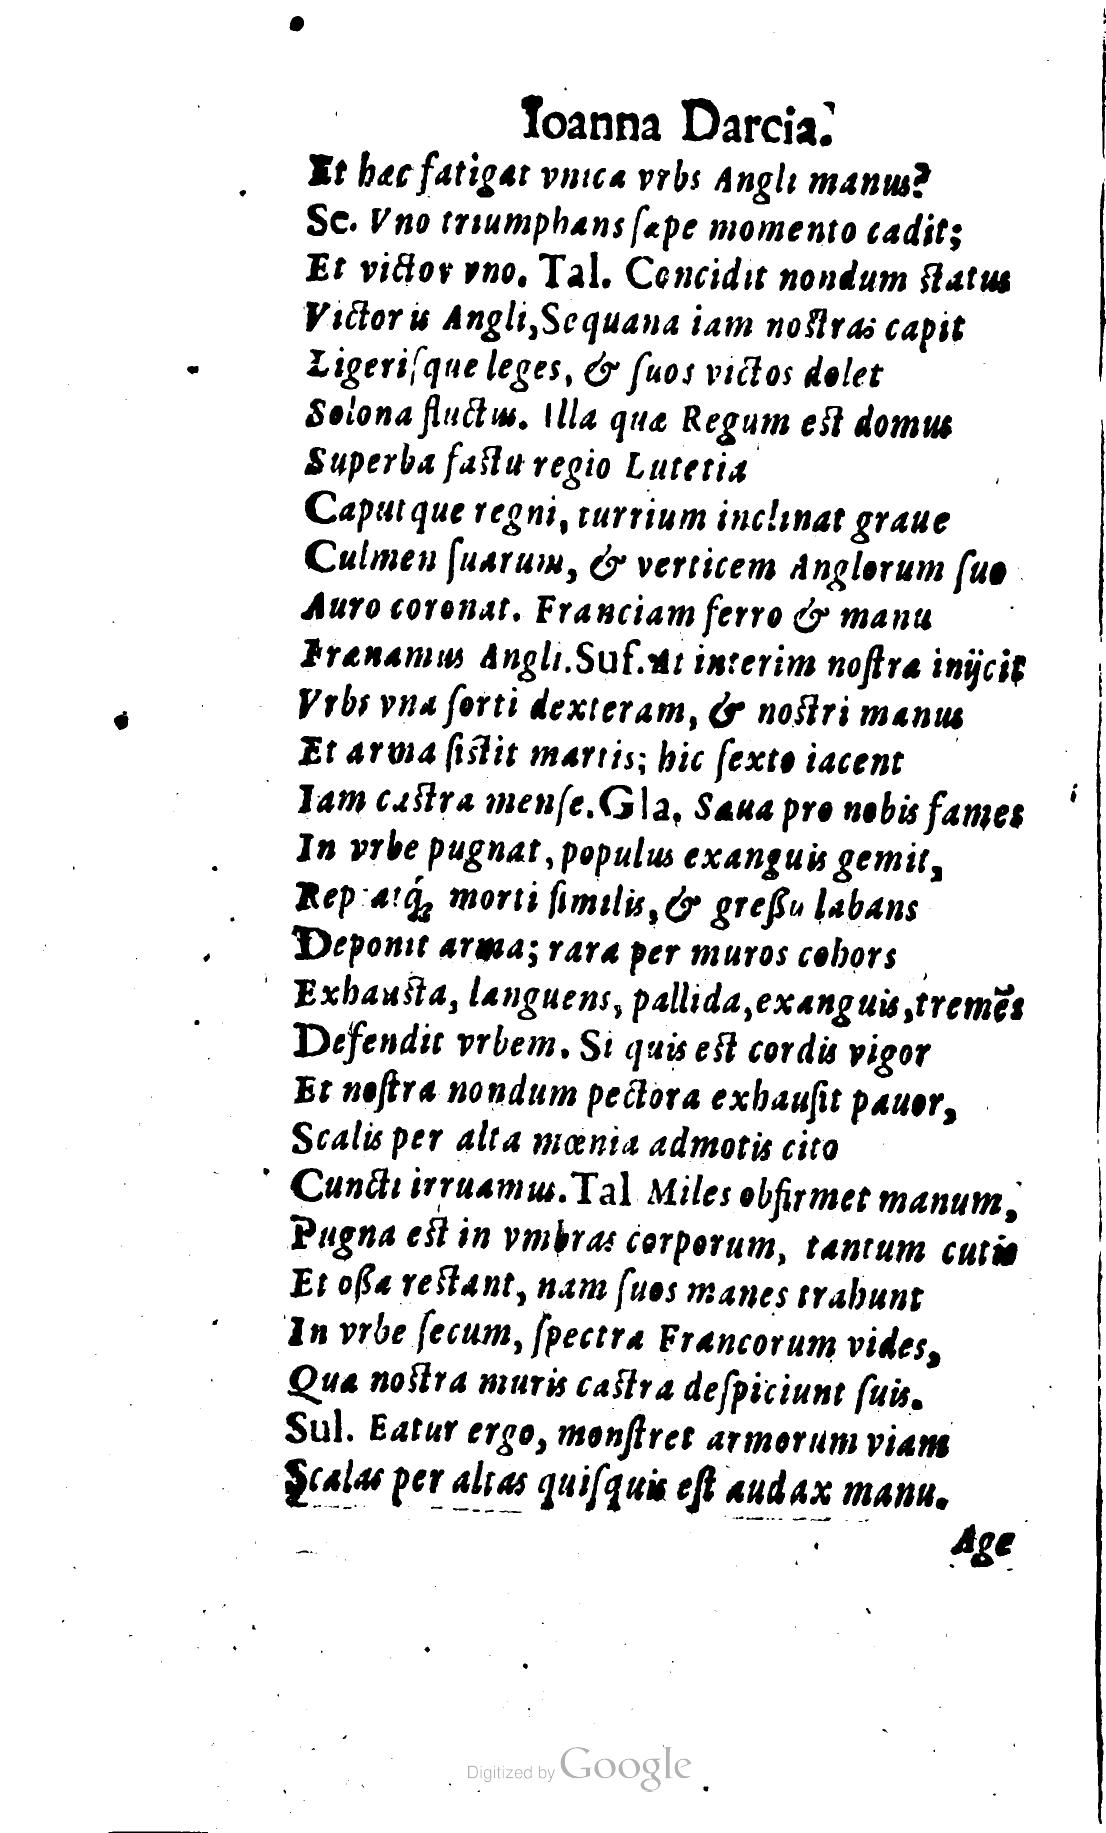 Ioanna Darcia.
Et hæc fatigat vnica vrbs Angli manus?
Sc. Vno triumphans ſæpe momento cadit;
Et victor vno. Tal. Concidit nondum status
Victoris Angli, Sequana iam nostras capit
Ligeriſque leges, & ſuos victos dolet
Solona fluctus. Illa quæ Regum est domus
Superba fastu regio Lutetia
Caput que regni, turrium inclinat graue
Culmen ſuarum, & verticem Anglorum ſuo
Auro coronat. Franciam ferro & manu
Frænamus Angli. Suf. At interim noſtra inijcit
Vrbs vna ſorti dexteram, & nostri manus
Et arma ſistit martis; hic ſexto iacent
Iam castra menſe. Gla. Sæua pro nobis fames
In vrbe pugnat, populus exanguis gemit,
Rep atq́; morti ſimilis, & greßu labans
Deponit arma; rara per muros cohors
Exhausta, languens, pallida, exanguis, tremẽs
Defendit vrbem. Si quis est cordis vigor
Et noſtra nondum pectora exhauſit pauor,
Scalis per alta mœnia admotis cito
Cuncti irruamus. Tal Miles obfirmet manum,
Pugna est in vmbras corporum, tantum cutis
Et oßa restant, nam ſuos manes trahunt
In vrbe ſecum, ſpectra Francorum vides,
Qua nostra muris castra deſpiciunt ſuis.
Sul. Eatur ergo, monſtret armorum viam
Scalas per altas quiſquis eſt audax manu.
Age
Digitized by Google